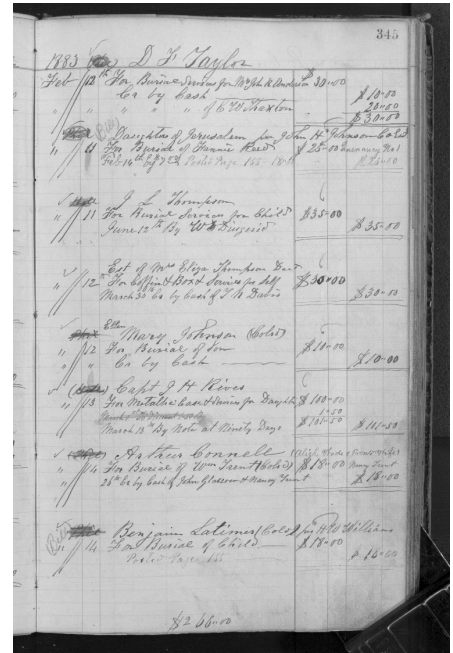 345
1883 D F Taylor
Feb 12th For Burial Services for Mr John K Anderson $30-00
Cr by Cash $10-00
" " " of C W Thexton 20-00
$30-00
Daughters of Jerusalem per John H Johnson Col'd
" 11 For Burial of Fannie Reed $25-00
Feb 14th By Posted Page 155
J L Thompson
" 11 For Burial Services for Child $35-00
June 12th By $35-00
Est of Mrs Eliza Thompson Dec'd
" 12th For Coffin & Box & Services for self $30-00
March 30 Cr by Cash of T N Davis $30-00
Ellen
Mary Johnson (Col'd)
" 12 For Burial of Son $10-00
" " Cr by Cash $10-00
Capt J H Rives
" 13 For Metallic Case & Services for Daughter $100-00
1-50
March 13th By Note at Ninety Days $101-50 $101-50
Arthur Connell
" 14 For Burial of Wm Trent (Col'd) $18-00 Nancy Trent
26th Cr by Cash of John Glascow & Nancy Trent $18-00
Benjamin Latimer (Col'd) per H W Williams
" 14 For Burial of Child $18-00
Posted Page 155
$266-00